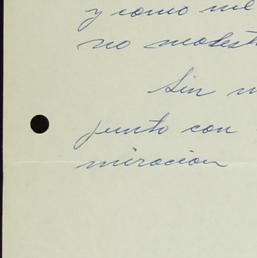 y como me
no molest
Sin m
junto con
miracion